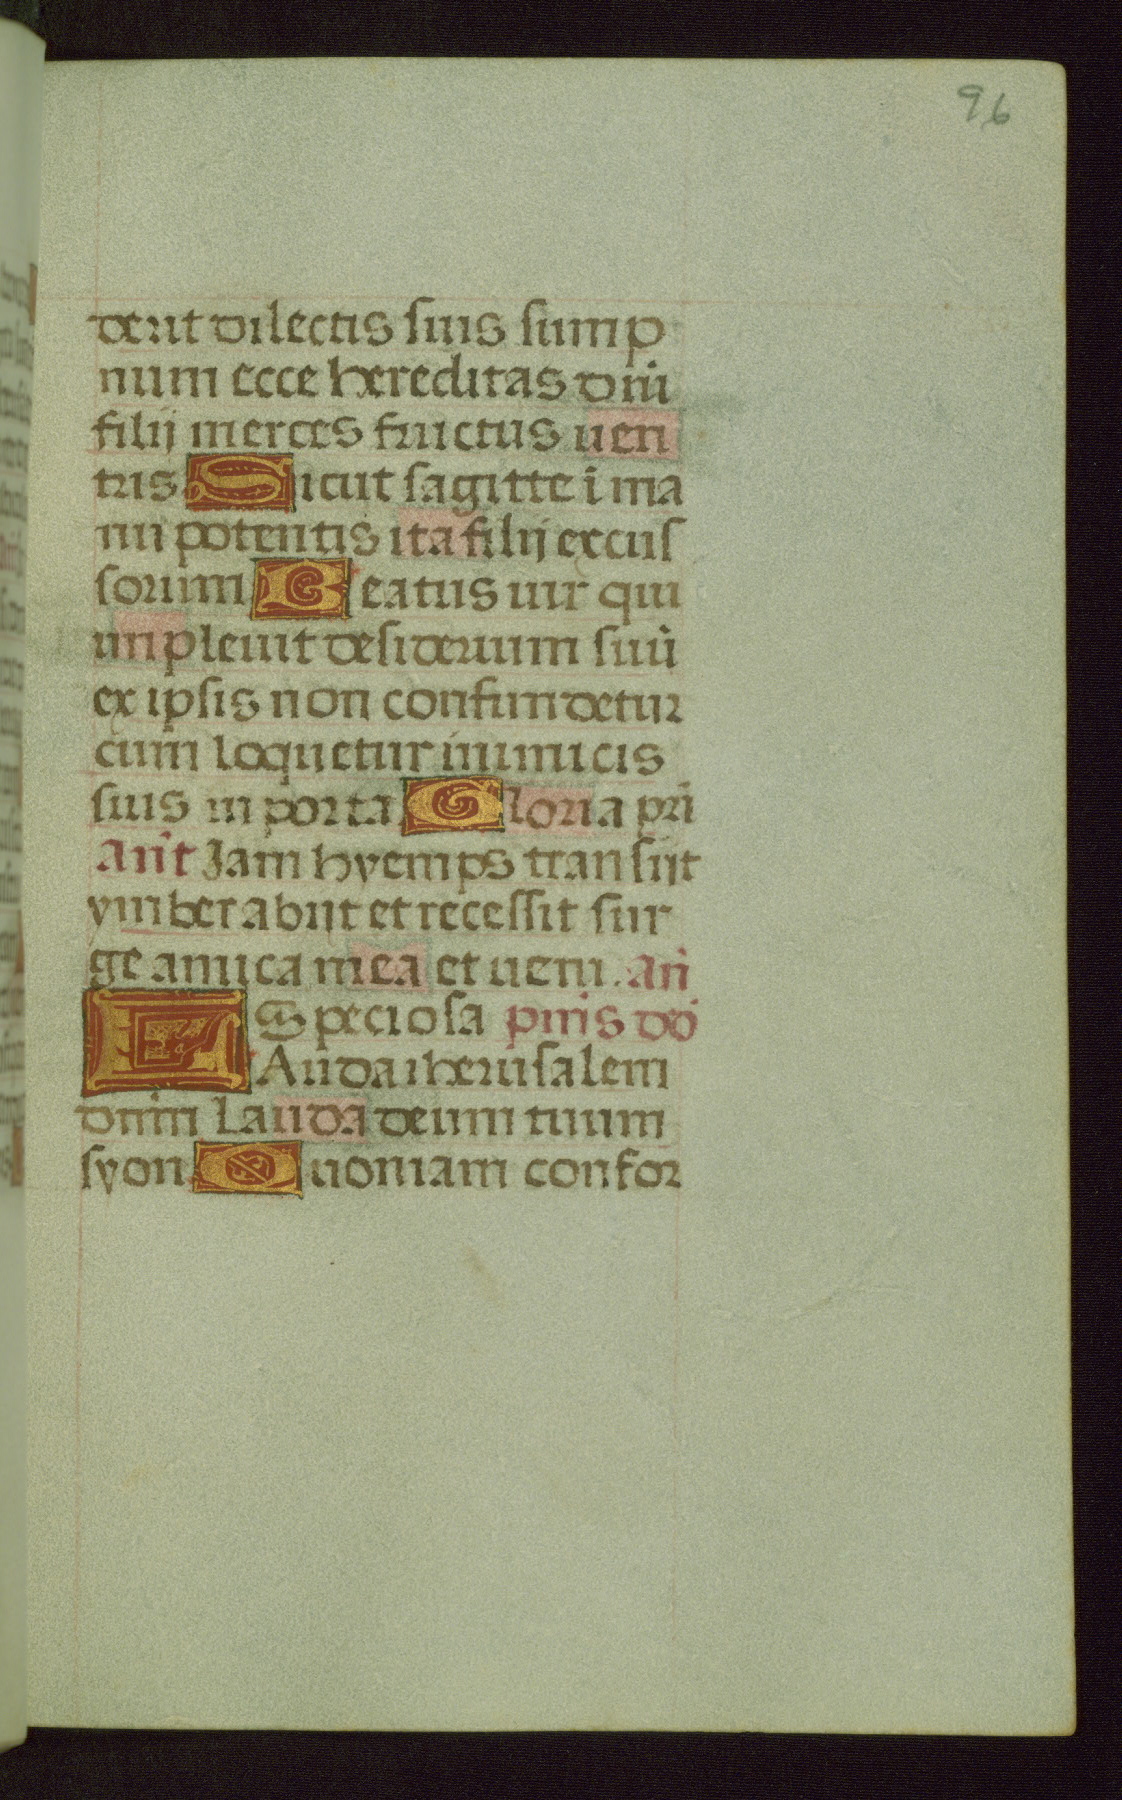 96
derit dilectis suis sump
num ecce hereditas dm̄
filij merces fructus uen
tris Sicut sagitte ī ma
nu potentis ita filij excus
sorum Beatus uir qui
impleuit desiderium suū
ex ipsis non confundetur
cum loquetur inimicis
suis in porta Gloria pr̄i
an̄t Jam hyemps transijt
ymber abijt et recessit sur
ge amica mea et ueni. an̄
Speciosa p̄mis dd̄
LAuda iherusalem
dnm̄ Lauda deum tuum
syon Quoniam confor